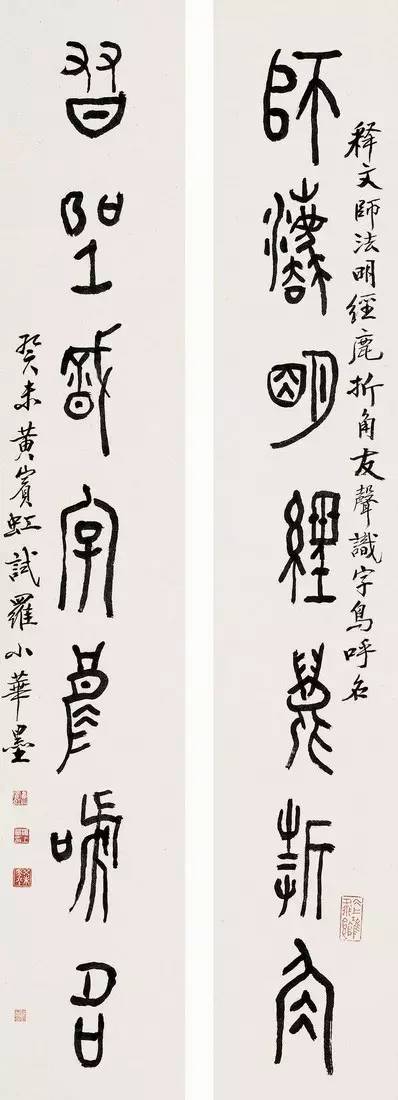 師灋明經鹿折角
释文師法明經鹿折角友聲識字鳥呼名
友聲識字鳥呼名
癸未黃賓虹試羅小華墨